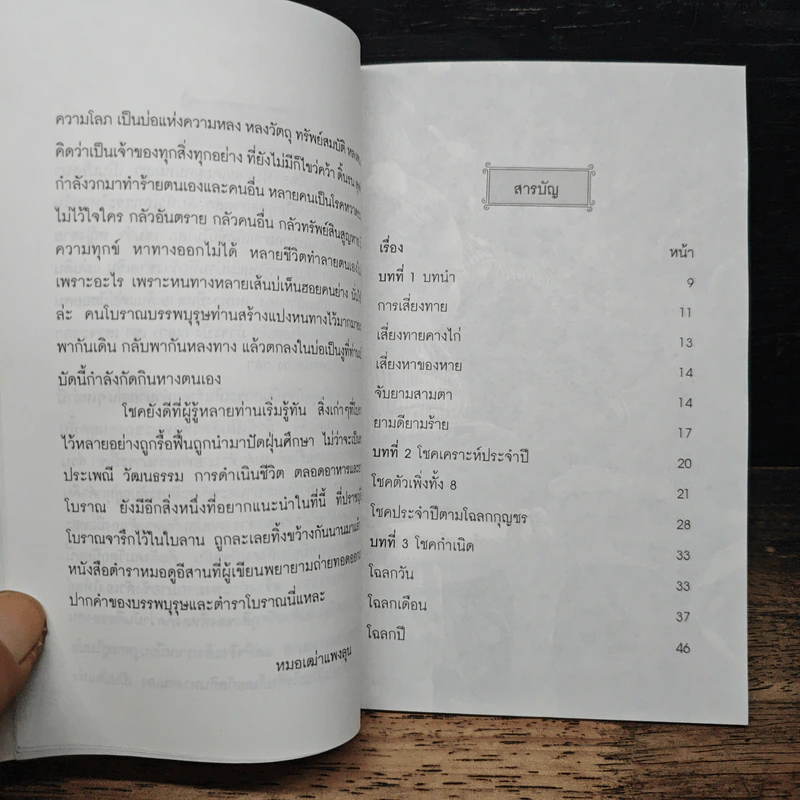 ความโลภ เป็นบ่อแห่งความหลง หลงวัตถุ ทรัพย์สมบัติ
คิดว่าเป็นเจ้าของทุกสิ่งทุกอย่าง ที่ยังไม่มีก็ไขว่คว้า ดิ้นรน
กำลังวกมาทำร้ายตนเองและคนอื่น หลายคนเป็นโรคหวาด
ไม่ไว้ใจใคร กลัวอันตราย กลัวคนอื่น กลัวทรัพย์สินสูญหาย
ความทุกข์ หาทางออกไม่ได้ หลายชีวิตทำลายตนเอง
เพราะอะไร เพราะหนทางหลายเส้นบ่เห็นฮอยคนย่าง
ล่ะ คนโบราณบรรพบุรุษท่านสร้างแปงหนทางไว้มากมาย
พากันเดิน กลับพากันหลงทาง แล้วตกลงในบ่อเป็นงูที่
บัดนี้กำลังกัดกินหางตนเอง
โชคยังดีที่ผู้รู้หลายท่านเริ่มรู้ทัน สิ่งเก่าๆที่
ไว้หลายอย่างถูกรื้อฟื้นถูกนำมาปัดฝุ่นศึกษา ไม่ว่าจะเป็น
ประเพณี วัฒนธรรม การดำเนินชีวิต ตลอดอาหารและ
โบราณ ยังมีอีกสิ่งหนึ่งที่อยากแนะนำในที่นี้ ที่ปราชญ์
โบราณจารึกไว้ในใบลาน ถูกละเลยทิ้งขว้างกันนานมาแล้ว
หนังสือตำราหมอดูอีสานที่ผู้เขียนพยายามถ่ายทอดออก
ปากคำของบรรพบุรุษและตำราโบราณนี่แหละ
หมอเฒ่าแพงลุน
สารบัญ
เรื่อง หน้า
บทที่ 1 บทนำ 9
การเสี่ยงทาย 11
เสี่ยงทายคางไก่ 13
เสี่ยงหาของหาย 14
จับยามสามตา 14
ยามดียามร้าย 17
บทที่ 2 โชคเคราะห์ประจำปี 20
โชคตัวเพิ่งทั้ง 8 21
โชคประจำปีตามโฉลกกุญชร 28
บทที่ 3 โชคกำเนิด 33
โฉลกวัน 33
โฉลกเดือน 37
โฉลกปี 46